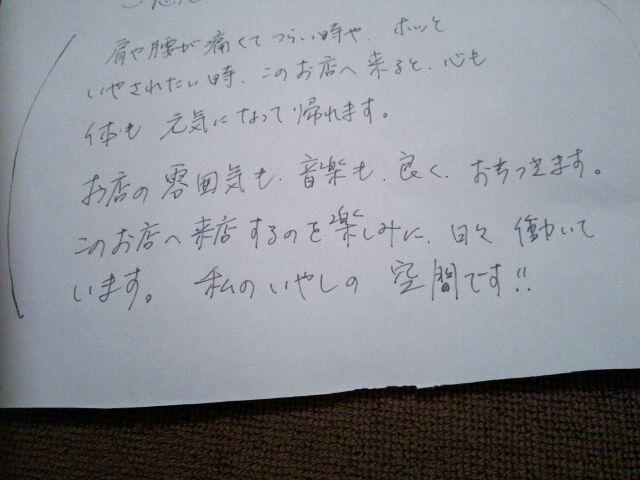 肩や腰が痛くてつらい時や、ホッと
いやされたい時、このお店へ来ると、心も
体も元気になって帰れます。
お店の雰囲気も、音楽も、良く、おちつきます。
このお店へ来店するのを楽しみに、日々働いて
います。私のいやしの空間です!!